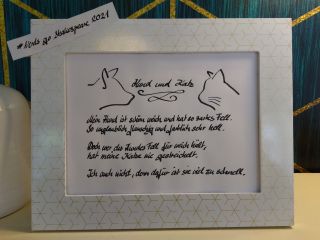 #Nerds go Shakespeare 2021
Hund und Katz
Mein Hund ist schön weich und hat so zartes Fell.
So unglaublich flauschig und farblich sehr hell.
Doch wer des Hundes Fell für weich hielt,
hat meine Katze nie gestreichelt.
Ich auch nicht, denn dafür ist sie viel zu schnell.